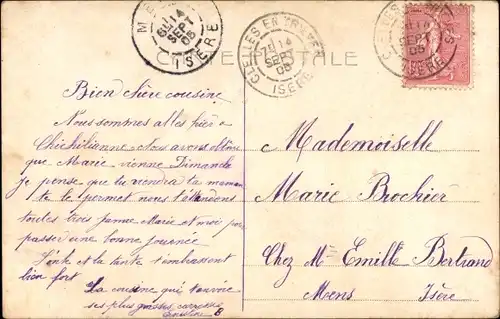 CARTE POSTALE
CLELLES EN TRIEVES
14
SEPT
05
ISERE
M
14
SEPT
05
ISERE
14
SEPT
05
ISERE
Bien chère cousine
Nous sommes allés hier à
Chichilianne. Nous avons
que Marie vienne Dimanche
je pense que tu viendra ta maman
te le permet nous t'attendons
toutes trois Marie et moi pour
passer une bonne journée
et la tante t'embrassent
bien fort
La cousine qui t'envoie
ses plus grosses caresses
B
Mademoiselle
Marie Brochier
Chez Mr Emille Bertrand
Mens Isère